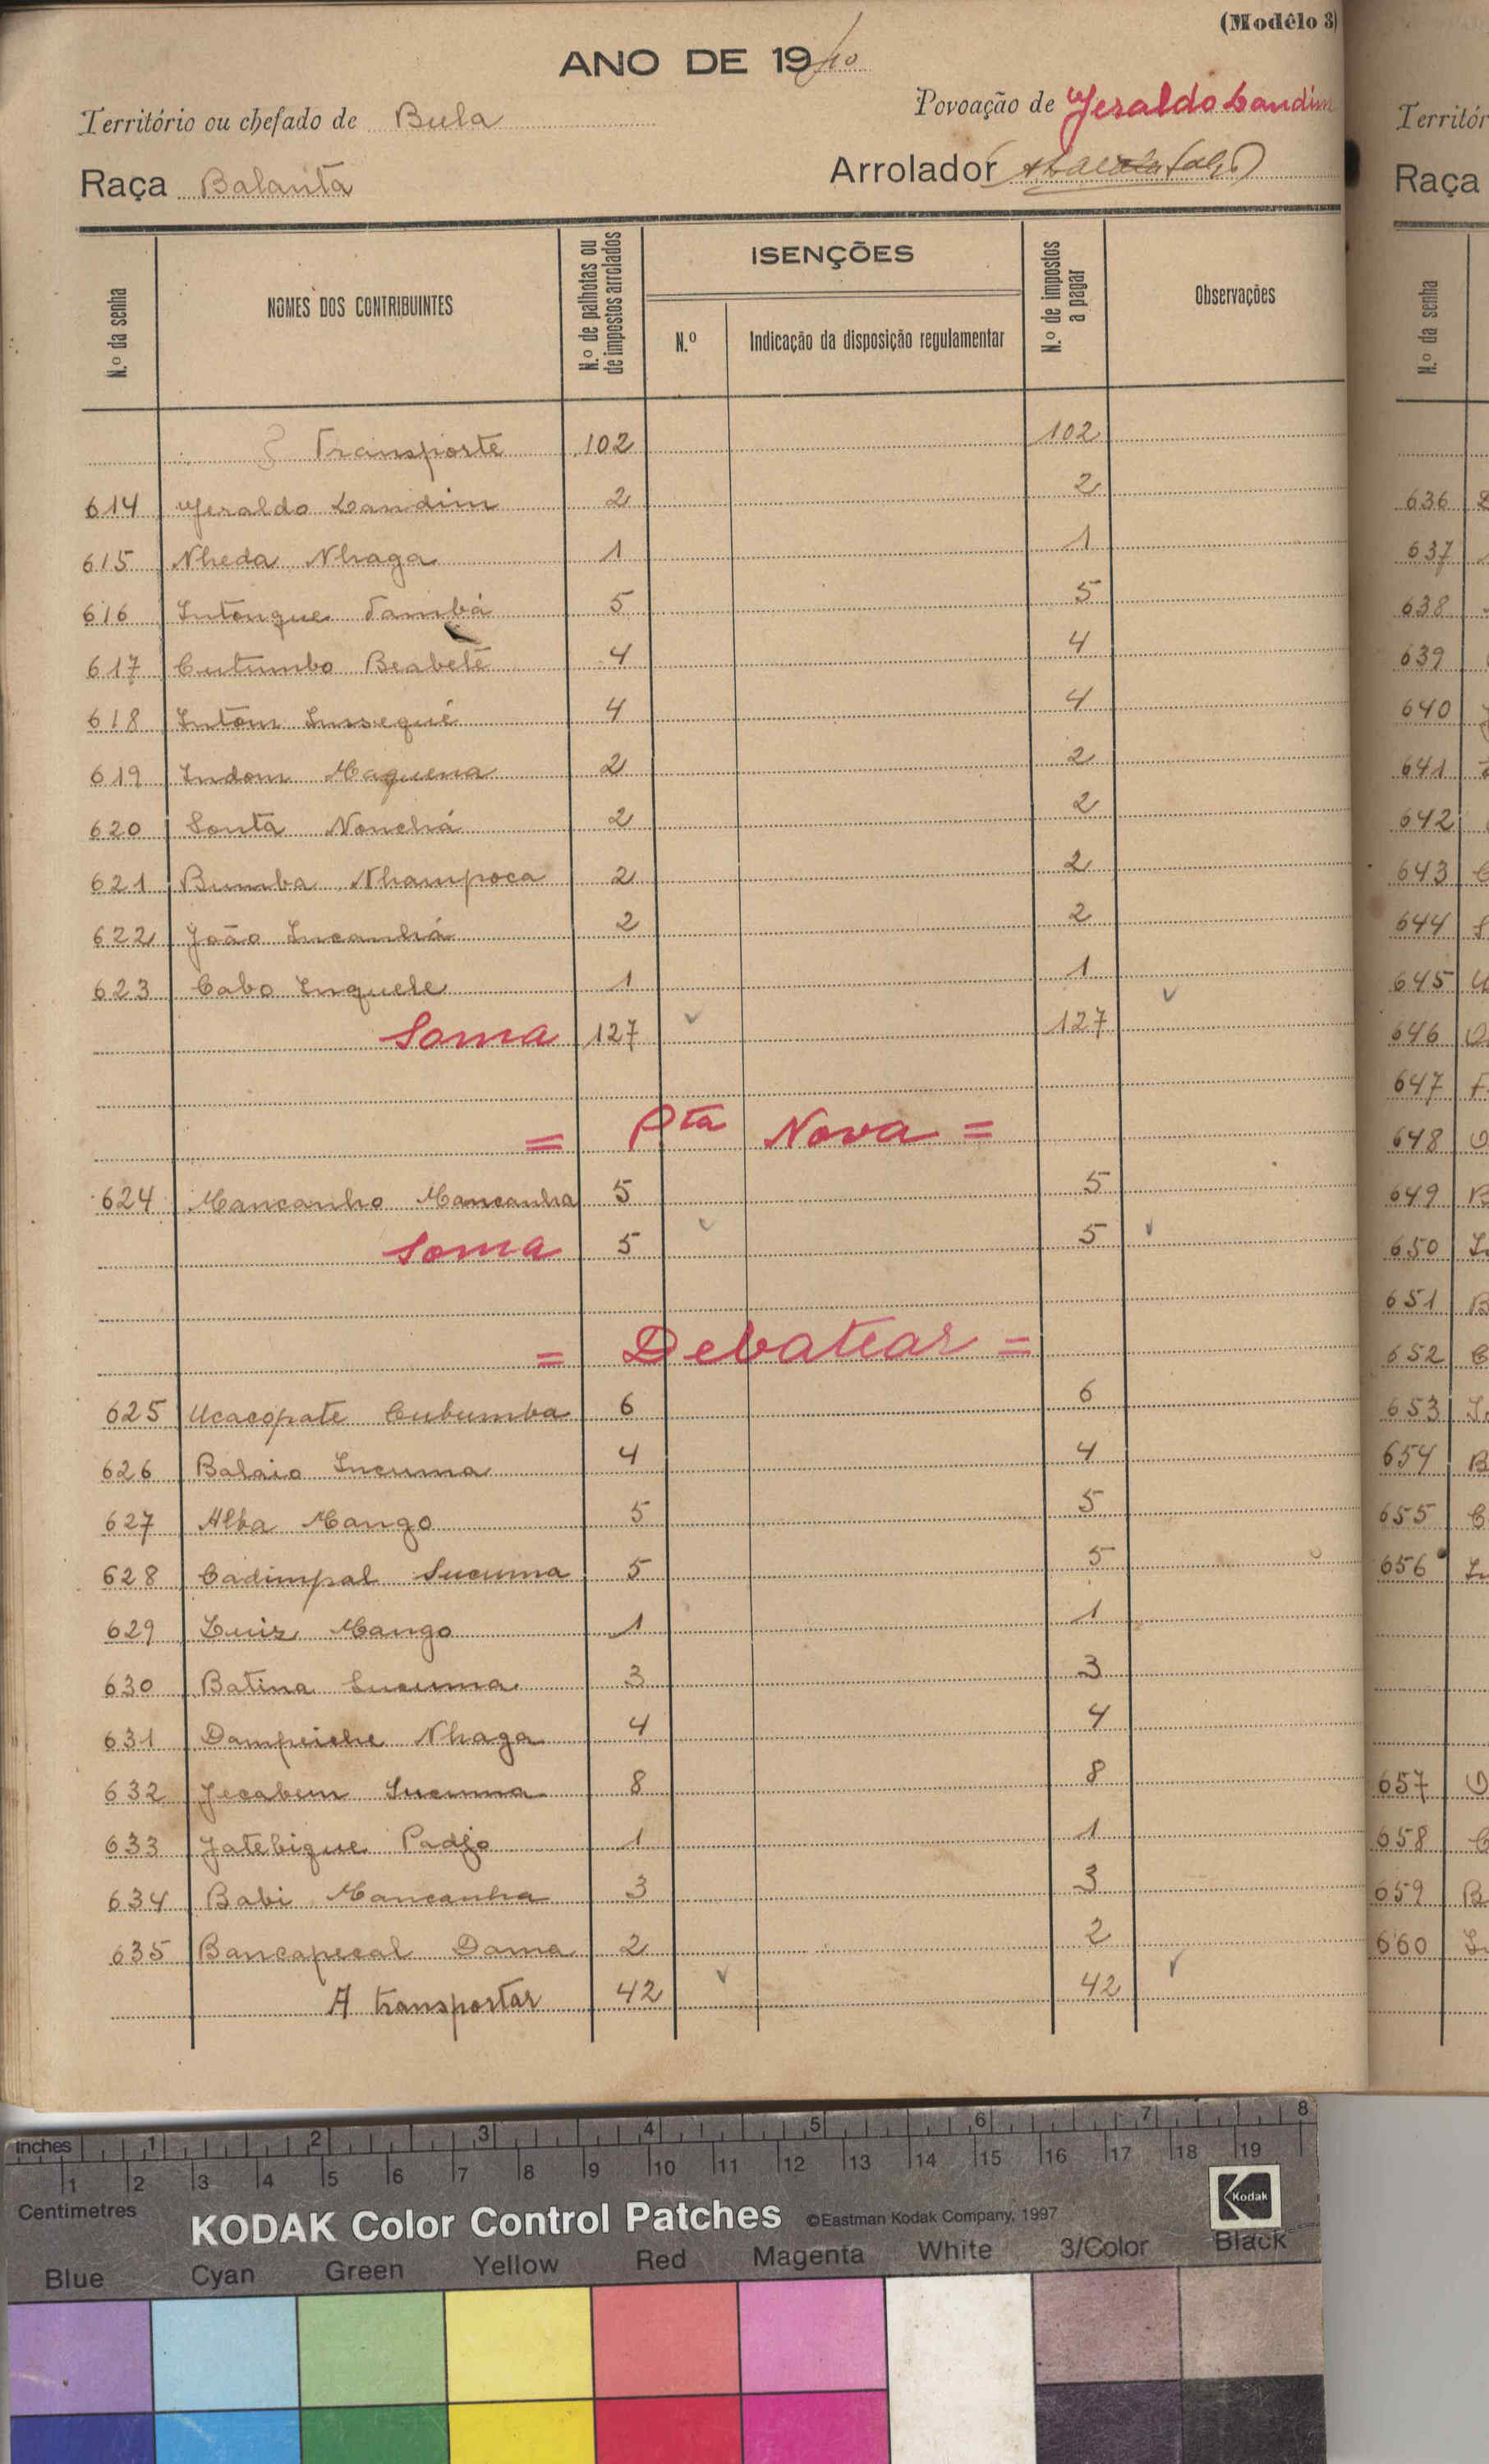 (Modêlo 3)
ANO DE 1940
Território ou chefado de Bula Povoação de Geraldo Landim
Raça Balanta Arrolador
N.º da senha NOMES DOS CONTRIBUINTES N.º de palhotas ou de impostos arrolados ISENÇÕES N.º Indicação da disposição regulamentar N.º de impostos a pagar Observações
Transporte 102 102
614 Geraldo Landim 2 2
615 Nheda Nhaga 1 1
616 Intongue Tambá 5 5
617 Cutumbo Beabetê 4 4
618 Intom Inssequé 4 4
619 Indom Maquena 2 2
620 Sonta Nonchá 2 2
621 Bumba Nhampoca 2 2
622 João Incanhá 2 2
623 Cabo Inquele 1 1
Soma 127 127
= Pta Nova =
624 Mancanho Mancanha 5 5
Soma 5 5
= Debatear =
625 Ucacopate Cubumba 6 6
626 Balaio Incuma 4 4
627 Alba Mango 5 5
628 Cadimpal Sucuma 5 5
629 Luiz Mango 1 1
630 Batina Sucuma 3 3
631 Dampeiche Nhaga 4 4
632 Jecabem Sucuma 8 8
633 Jatebique Padjo 1 1
634 Babi Mancanha 3 3
635 Bancapecal Dama 2 2
A transportar 42 42
Territór
Raça
N.º da senha
636
637
638
639
640
641
642
643
644
645
646
647
648
649
650
651
652
653
654
655
656
657
658
659
660
inches 1 2 3 4 5 6 7 8
Centimetres 1 2 3 4 5 6 7 8 9 10 11 12 13 14 15 16 17 18 19
KODAK Color Control Patches ©Eastman Kodak Company, 1997 Kodak
Blue Cyan Green Yellow Red Magenta White 3/Color Black